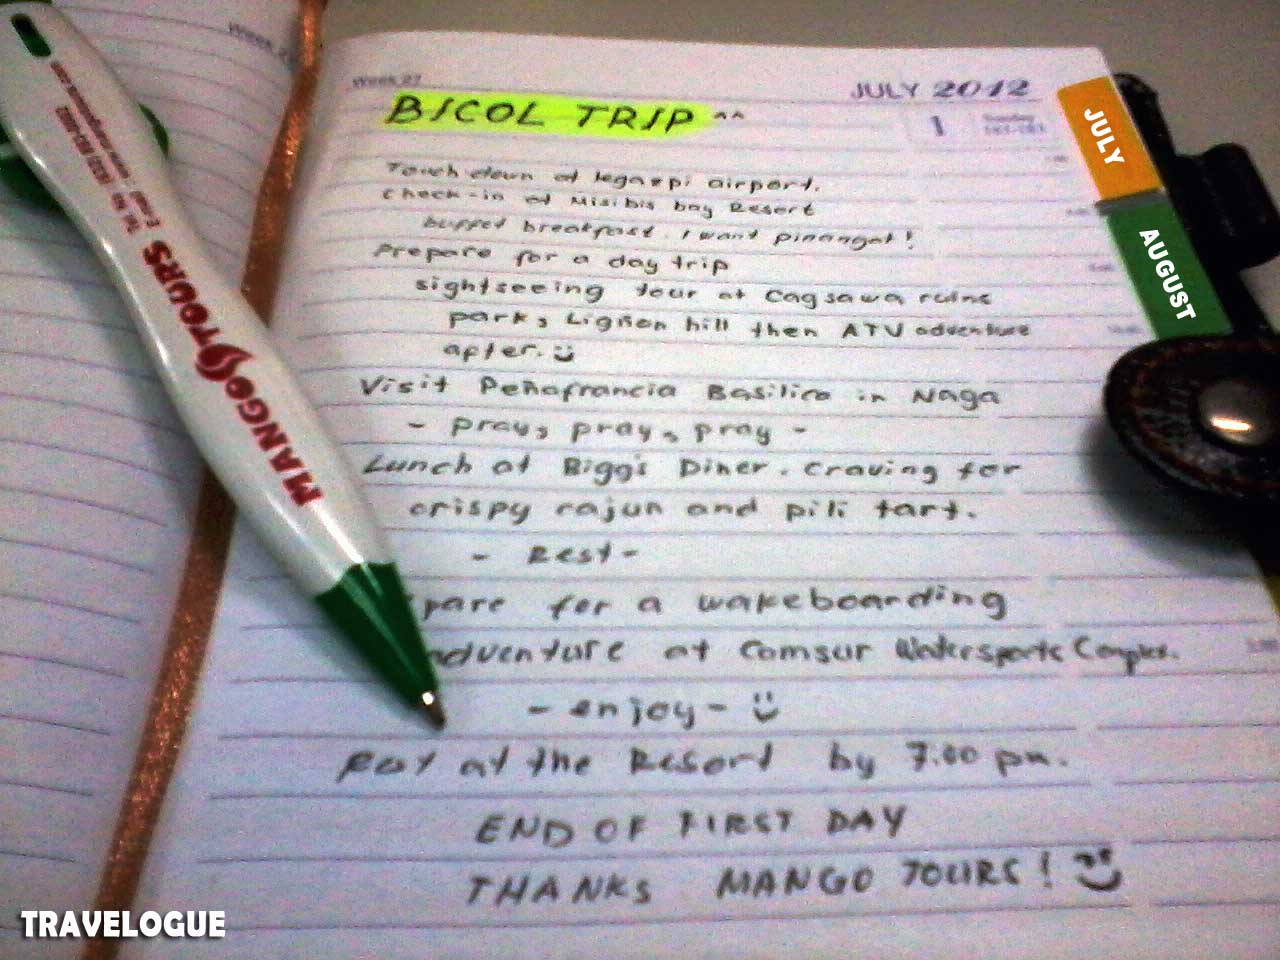 Week 27
JULY 2012
BICOL TRIP ^^
1
Sunday
JULY
AUGUST
Touch down at legazpi airport.
Check-in at Misibis bay Resort
buffet breakfast. I want pinangat!
Prepare for a day trip
sightseeing tour at Cagsawa ruins
park, Lignon hill then ATV adventure
after.
Visit Peñafrancia Basilica in Naga
- pray, pray, pray -
Lunch at Bigg's Diner. Craving for
crispy cajun and pili tart.
- Rest -
pare for a wakeboarding
adventure at Camsur Watersports Complex.
- enjoy -
Rest at the Resort by 7.00 pm.
END OF FIRST DAY
THANKS MANGO TOURS!
MANGO TOURS
TRAVELOGUE